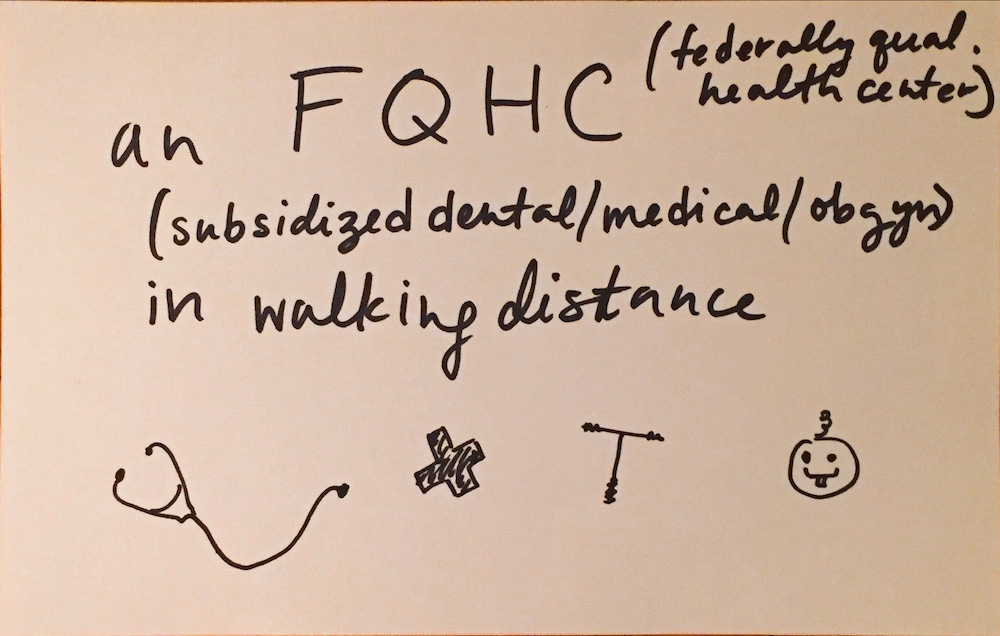 an FQHC (federally qual.
health center)
(subsidized dental/medical/obgyn)
in walking distance